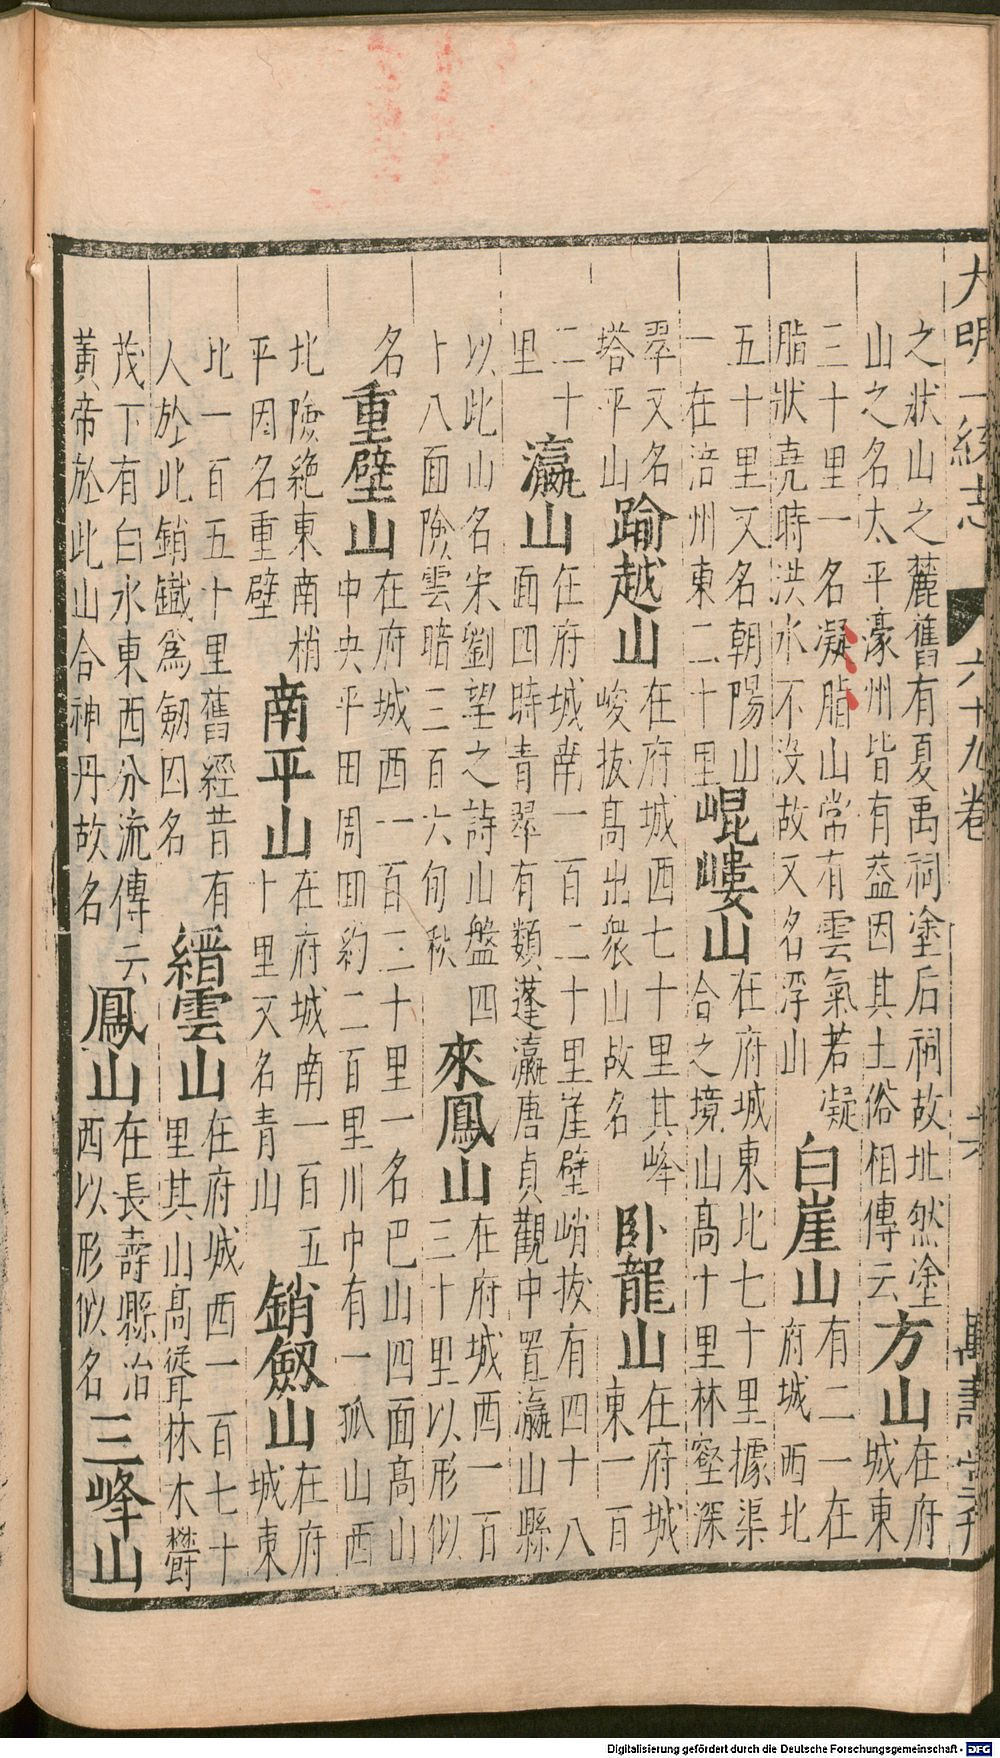 大明一統志 六十九卷 六 萬壽堂刊
之狀山之麓舊有夏禹祠塗后祠故址然塗
山之名太平濠州皆有葢因其土俗相傳云
方山
在府
城東
三十里一名凝脂山常有雲氣若凝
脂狀堯時洪水不没故又名浮山
白崖山
有二一在
府城西北
五十里又名朝陽山
一在涪州東二十里
崐嶁山
在府城東北七十里據渠
合之境山髙十里林壑深
翠又名
塔平山
踰越山
在府城西七十里其峰
峻拔髙出衆山故名
卧龍山
在府城
東一百
二十
里
瀛山
在府城南一百二十里崖壁峭拔有四十八
面四時青翠有類蓬瀛唐貞觀中置瀛山縣
以此山名宋劉望之詩山盤四
十八面險雲暗三百六旬秋
來鳳山
在府城西一百
三十里以形似
名
重壁山
在府城西一百三十里一名巴山四面髙山
中央平田周回約二百里川中有一孤山西
北險絶東南梢
平因名重壁
南平山
在府城南一百五
十里又名青山
銷劔山
在府
城東
北一百五十里舊經昔有
人於此銷鐵爲劔因名
縉雲山
在府城西一百七十
里其山髙聳林木欝
茂下有白水東西分流傳云
黄帝於此山合神丹故名
鳳山
在長壽縣治
西以形似名
三峰山
Digitalisierung gefördert durch die Deutsche Forschungsgemeinschaft - DFG